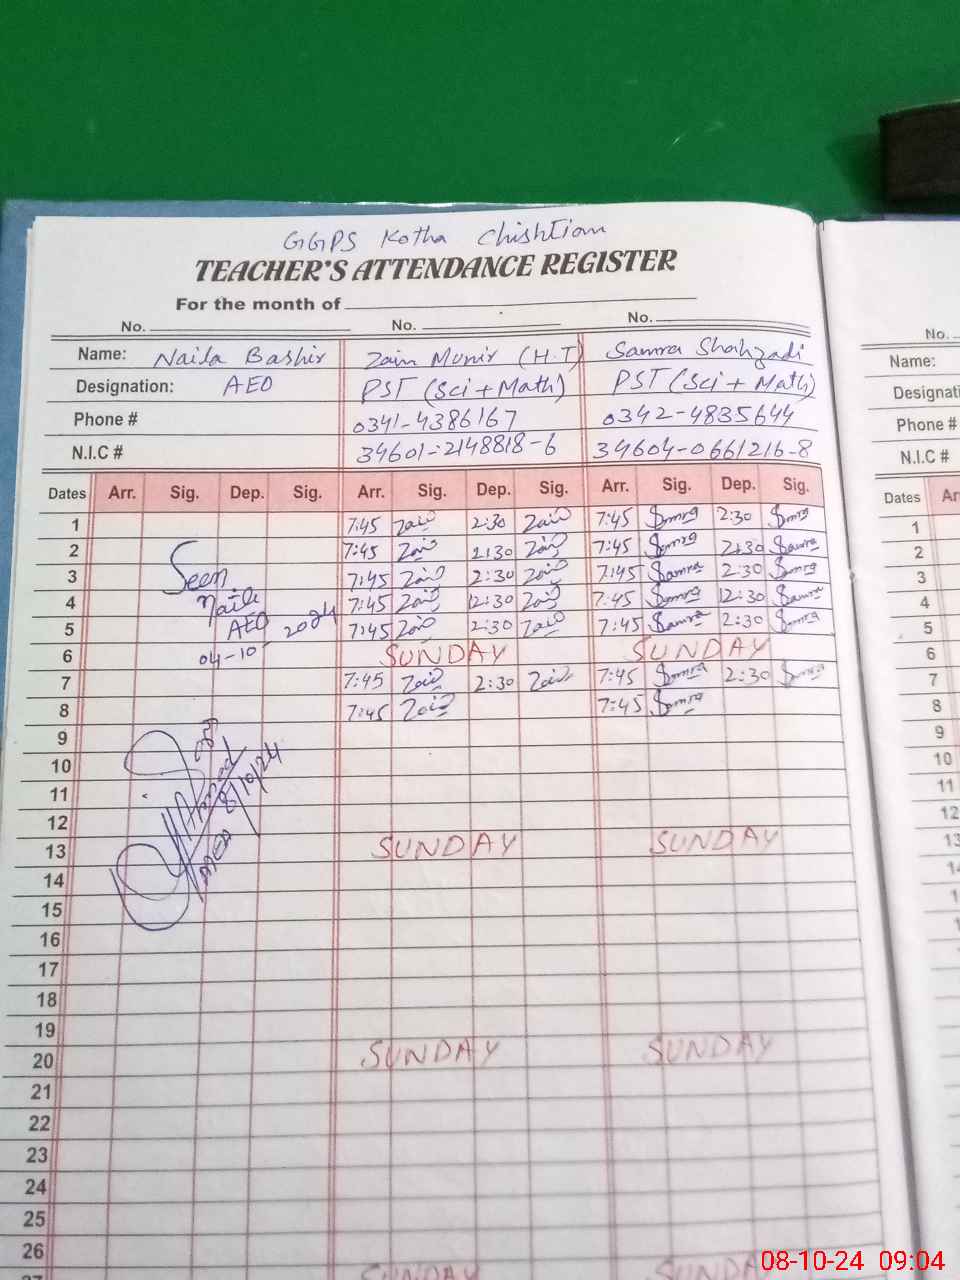 GGPS Kotha Chishtian
TEACHER'S ATTENDANCE REGISTER
For the month of
No. No. No.
Name: Naila Bashir Zain Munir (H.T) Samra Shahzadi
Designation: AEO PST (Sci + Math) PST (Sci + Math)
Phone # 0341-4386167 0342-4835644
N.I.C # 34601-2148818-6 34604-0661216-8
Dates Arr. Sig. Dep. Sig. Arr. Sig. Dep. Sig. Arr. Sig. Dep. Sig.
1 7:45 Zain 2:30 Zain 7:45 Samra 2:30 Samra
2 7:45 Zain 2:30 Zain 7:45 Samra 2:30 Samra
3 Seen 7:45 Zain 2:30 Zain 7:45 Samra 2:30 Samra
4 Naila 7:45 Zain 12:30 Zain 7:45 Samra 12:30 Samra
5 AEO 2024 7:45 Zain 2:30 Zain 7:45 Samra 2:30 Samra
6 04-10 SUNDAY SUNDAY
7 7:45 Zain 2:30 Zain 7:45 Samra 2:30 Samra
8 7:45 Zain 7:45 Samra
9
10 Ahmad 8/10/24
11
12
13 AEO SUNDAY SUNDAY
14
15
16
17
18
19
20 SUNDAY SUNDAY
21
22
23
24
25
26
SUNDAY SUNDAY
No.
Name:
Designati
Phone #
N.I.C #
Dates Ar
1
2
3
4
5
6
7
8
9
10
11
12
13
14
08-10-24 09:04